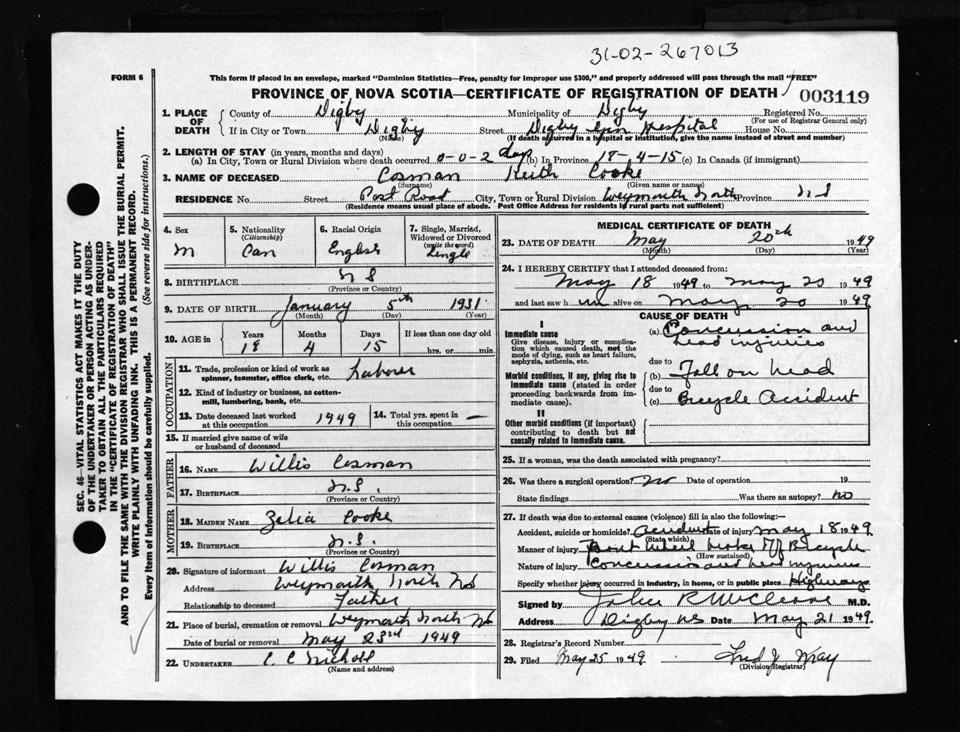 31-02-267013
FORM 6
This form if placed in an envelope, marked "Dominion Statistics—Free, penalty for improper use $300," and properly addressed will pass through the mail "FREE"
PROVINCE OF NOVA SCOTIA—CERTIFICATE OF REGISTRATION OF DEATH
003119
1. PLACE OF DEATH
County of Digby Municipality of Digby Registered No.
(For use of Registrar General only)
If in City or Town Digby Street Digby Gen Hospital House No.
(Name) (If death occurred in a hospital or institution, give the name instead of street and number)
2. LENGTH OF STAY (in years, months and days)
(a) In City, Town or Rural Division where death occurred 0-0-2 days (b) In Province 18-4-15 (c) In Canada (if immigrant)
3. NAME OF DECEASED Cosman Keith Cooke
(Surname) (Given name or names)
RESIDENCE No. Street Post Road City, Town or Rural Division Weymouth North Province N S
(Residence means usual place of abode. Post Office Address for residents in rural parts not sufficient)
4. Sex
M
5. Nationality
(Citizenship)
Can
6. Racial Origin
English
7. Single, Married, Widowed or Divorced
(write the word)
Single
8. BIRTHPLACE N S
(Province or Country)
9. DATE OF BIRTH January 5th 1931
(Month) (Day) (Year)
10. AGE in
Years Months Days If less than one day old
18 4 15 hrs. or min.
OCCUPATION
11. Trade, profession or kind of work as spinner, teamster, office clerk, etc. Laborer
12. Kind of industry or business, as cotton-mill, lumbering, bank, etc.
13. Date deceased last worked at this occupation 1949
14. Total yrs. spent in this occupation —
15. If married give name of wife or husband of deceased
FATHER
16. NAME Willis Cosman
17. BIRTHPLACE N.S.
(Province or Country)
MOTHER
18. MAIDEN NAME Zelia Cooke
19. BIRTHPLACE N.S.
(Province or Country)
20. Signature of informant Willis Cosman
Address Weymouth North NS
Relationship to deceased Father
21. Place of burial, cremation or removal Weymouth North NS
Date of burial or removal May 23rd 1949
22. UNDERTAKER C C Nicholl
(Name and address)
MEDICAL CERTIFICATE OF DEATH
23. DATE OF DEATH May 20th 1949
(Month) (Day) (Year)
24. I HEREBY CERTIFY that I attended deceased from:
May 18 1949 to May 20 1949
and last saw him alive on May 20 1949
CAUSE OF DEATH
I
Immediate cause
Give disease, injury or complication which caused death, not the mode of dying, such as heart failure, asphyxia, asthenia, etc.
(a) Concussion and head injuries
due to
Morbid conditions, if any, giving rise to immediate cause (stated in order proceeding backwards from immediate cause).
(b) Fall on head
due to
(c) Bicycle Accident
II
Other morbid conditions (if important) contributing to death but not causally related to immediate cause.
25. If a woman, was the death associated with pregnancy?
26. Was there a surgical operation? No Date of operation 19
State findings Was there an autopsy? No
27. If death was due to external causes (violence) fill in also the following:
Accident, suicide or homicide? Accident Date of injury May 18 1949
(State which)
Manner of injury Front wheel broke off Bicycle
(How sustained)
Nature of injury Concussion and head injuries
Specify whether injury occurred in industry, in home, or in public place Highway
Signed by John R McCleave M.D.
Address Digby NS Date May 21 1949
28. Registrar's Record Number
29. Filed May 25 1949 Fred J May
(Division Registrar)
SEC. 46—VITAL STATISTICS ACT MAKES IT THE DUTY
OF THE UNDERTAKER OR PERSON ACTING AS UNDER-
TAKER TO OBTAIN ALL THE PARTICULARS REQUIRED
IN THE "CERTIFICATE OF REGISTRATION OF DEATH"
AND TO FILE THE SAME WITH THE DIVISION REGISTRAR WHO SHALL ISSUE THE BURIAL PERMIT.
WRITE PLAINLY WITH UNFADING INK. THIS IS A PERMANENT RECORD.
Every item of information should be carefully supplied. (See reverse side for instructions.)